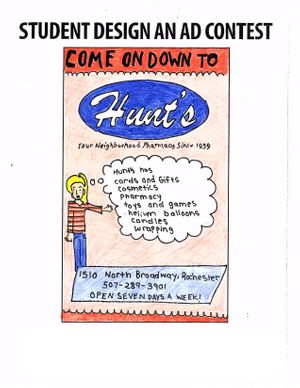 STUDENT DESIGN AN AD CONTEST
COME ON DOWN TO
Hunt's
Your Neighborhood Pharmacy Since 1959
Hunts has
cards and Gifts
cosmetics
pharmacy
toys and games
helium balloons
candles
wrapping
1510 North Broadway, Rochester
507-289-3901
OPEN SEVEN DAYS A WEEK!